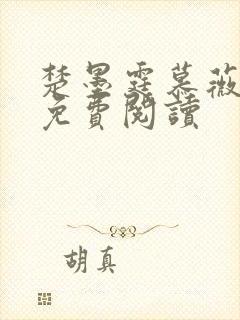 楚墨霆慕薇
免費閱讀
胡真